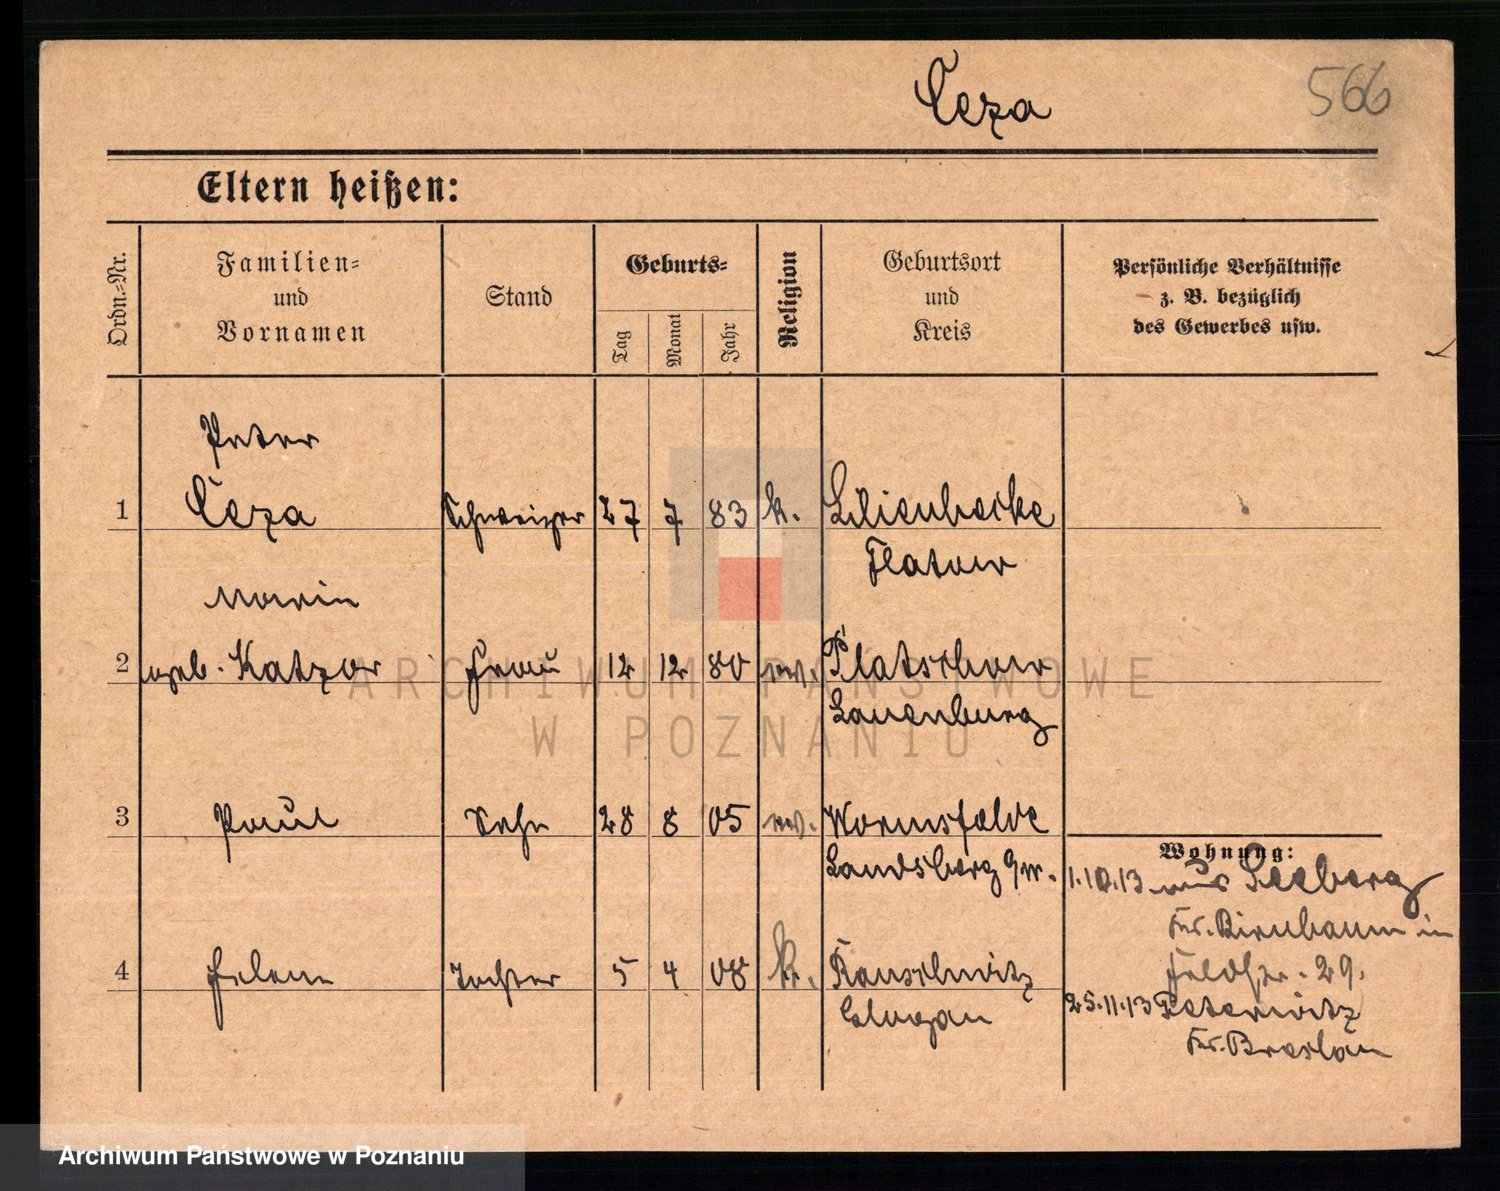 Ceza
566
Eltern heißen:
Ordn.-Nr.
Familien-
und
Vornamen
Stand
Geburts-
Tag
Monat
Jahr
Religion
Geburtsort
und
Kreis
Persönliche Verhältnisse
z. B. bezüglich
des Gewerbes usw.
Peter
1 Ceza Schweizer 27 7 83 k. Lilienhecke
Flatow
Marie
2 geb. Katzor Frau 12 12 80 ev. Platschow
Lauenburg
3 Paul Sohn 28 8 05 ev. Wormsfelde
Landsberg a/W.
Wohnung:
1.10.13 aus Seeberg
Kr. Birnbaum in
4 Helene Tochter 5 4 08 k. Rauschwitz
Feldstr. 29.
Glogau
25.11.13 Peterwitz
Kr. Breslau
ARCHIWUM PAŃSTWOWE
W POZNANIU
Archiwum Państwowe w Poznaniu